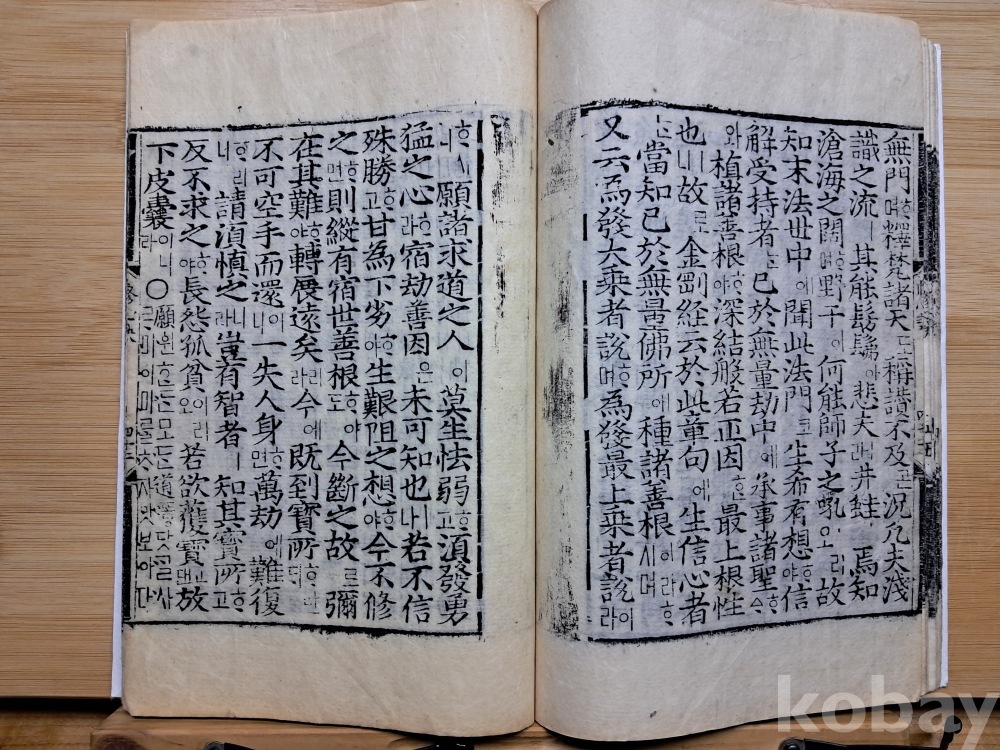 無門ᄒᆞ며釋梵諸天도稱讚不及곤況凡夫淺
識之流ㅣ其能髣髴아悲夫라井蛙ㅣ焉知
滄海之闊예며野干이何能師子之吼ㅣ리오故
知末法世中에聞此法門코生希有想야信
解受持者ᄂᆞᆫ已於無量劫中에承事諸聖ᄒᆞ
와植諸善根ᄒᆞ야深結般若正因ᄒᆞᆫ最上根性
也ㅣ니故로金剛経云於此章句에生信心者
ᄂᆞᆫ當知已於無量佛所애種諸善根이라ᄒᆞ시며
又云為發大乘者說ᄒᆞ며為發最上乘者說이라
ᄒᆞ시니願諸求道之人이莫生怯弱ᄒᆞ고須發勇
猛之心ᄒᆞ라宿劫善因은未可知也ㅣ니若不信
殊勝ᄒᆞ고甘為下劣ᄒᆞ야生艱阻之想ᄒᆞ야今不修
之ᄒᆞ면則縱有宿世善根이라도今斷之故로彌
在其難ᄒᆞ야轉展遠矣리라今에既到寶所ᄒᆞ란ᄃᆡ
不可空手而還이니一失人身면萬劫에難復
ᄒᆞ리니請湏慎之니라豈有智者ㅣ知其寶所ᄒᆞ고
反不求之ᄒᆞ야長怨孤貧이리오若欲獲寶ㅣᆫ댄放
下皮囊이니라○願원